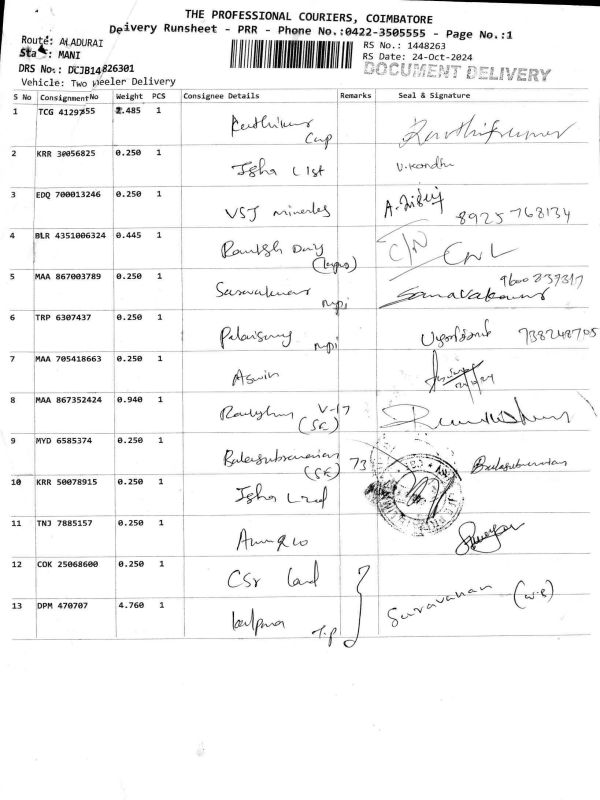 THE PROFESSIONAL COURIERS, COIMBATORE
Deivery Runsheet - PRR - Phone No.:0422-3505555 - Page No.:1
Route: ALADURAI
RS No.: 1448263
Staff: MANI
RS Date: 24-Oct-2024
DRS No.: DCJB14826301
DOCUMENT DELIVERY
Vehicle: Two Wheeler Delivery
S No ConsignmentNo Weight PCS Consignee Details Remarks Seal & Signature
1 TCG 41297855 2.485 1 Karthikumar Karthikumar
2 KRR 30056825 0.250 1 Isha V.Kandhu
3 EDQ 700013246 0.250 1 VSJ minerles 8925768134
4 BLR 4351006324 0.445 1 C/N
5 MAA 867003789 0.250 1 Saravakumar mpi 9600839317 Saravakumar
6 TRP 6307437 0.250 1 mpi 738248705
7 MAA 705418663 0.250 1 Aswin
8 MAA 867352424 0.940 1 V-17 (SK)
9 MYD 6585374 0.250 1 Balasubramanian (SK) 73 Balasubramanian
10 KRR 50078915 0.250 1 Isha
11 TNJ 7885157 0.250 1
12 COK 25068600 0.250 1 CSr Land
13 DPM 470707 4.760 1 kalpana T.P Saravanan